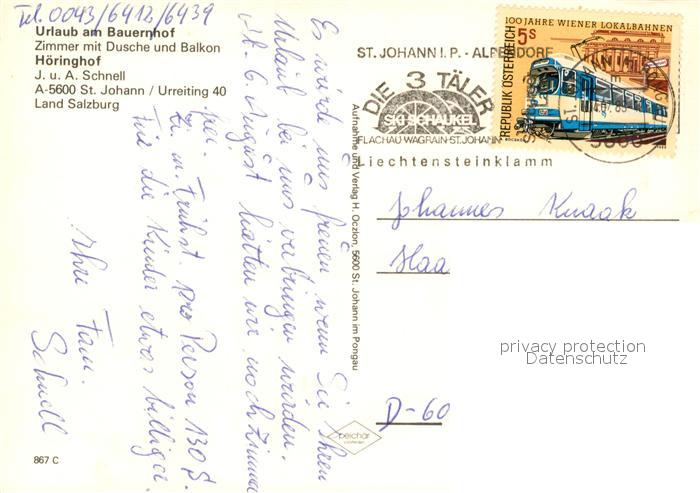 Tel. 0043/6412/6439
Urlaub am Bauernhof
Zimmer mit Dusche und Balkon
Höringhof
J. u. A. Schnell
A-5600 St. Johann / Urreiting 40
Land Salzburg
Es würde uns freuen wenn Sie Ihren
Urlaub bei uns verbringen würden.
6. August hätten wir noch Zimmer
frei.
Zi. m. Frühst. pro Person 130 S.
Für die Kinder etwas billiger.
Ihre Fam.
Schnell
867 C
Aufnahme und Verlag H. Oczlon, 5600 St. Johann im Pongau
ST. JOHANN I. P. - ALPENDORF
DIE 3 TÄLER
SKI SCHAUKEL
FLACHAU WAGRAIN ST. JOHANN
Liechtensteinklamm
100 JAHRE WIENER LOKALBAHNEN
5s
REPUBLIK ÖSTERREICH
5600
Johannes Knaak
Haa
D-60
peichar
privacy protection
Datenschutz